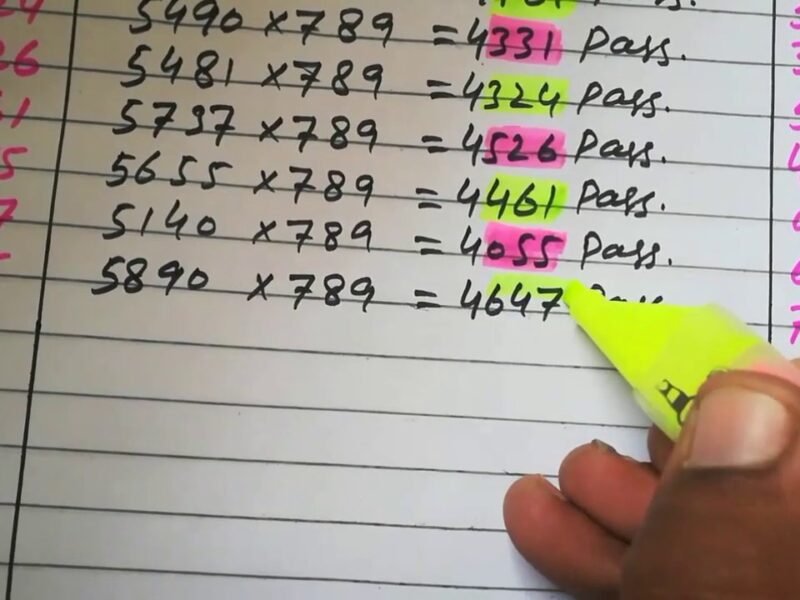 5490 × 789 = 4331 Pass.
5481 × 789 = 4324 Pass.
5737 × 789 = 4526 Pass.
5655 × 789 = 4461 Pass.
5140 × 789 = 4055 Pass.
5890 × 789 = 4647